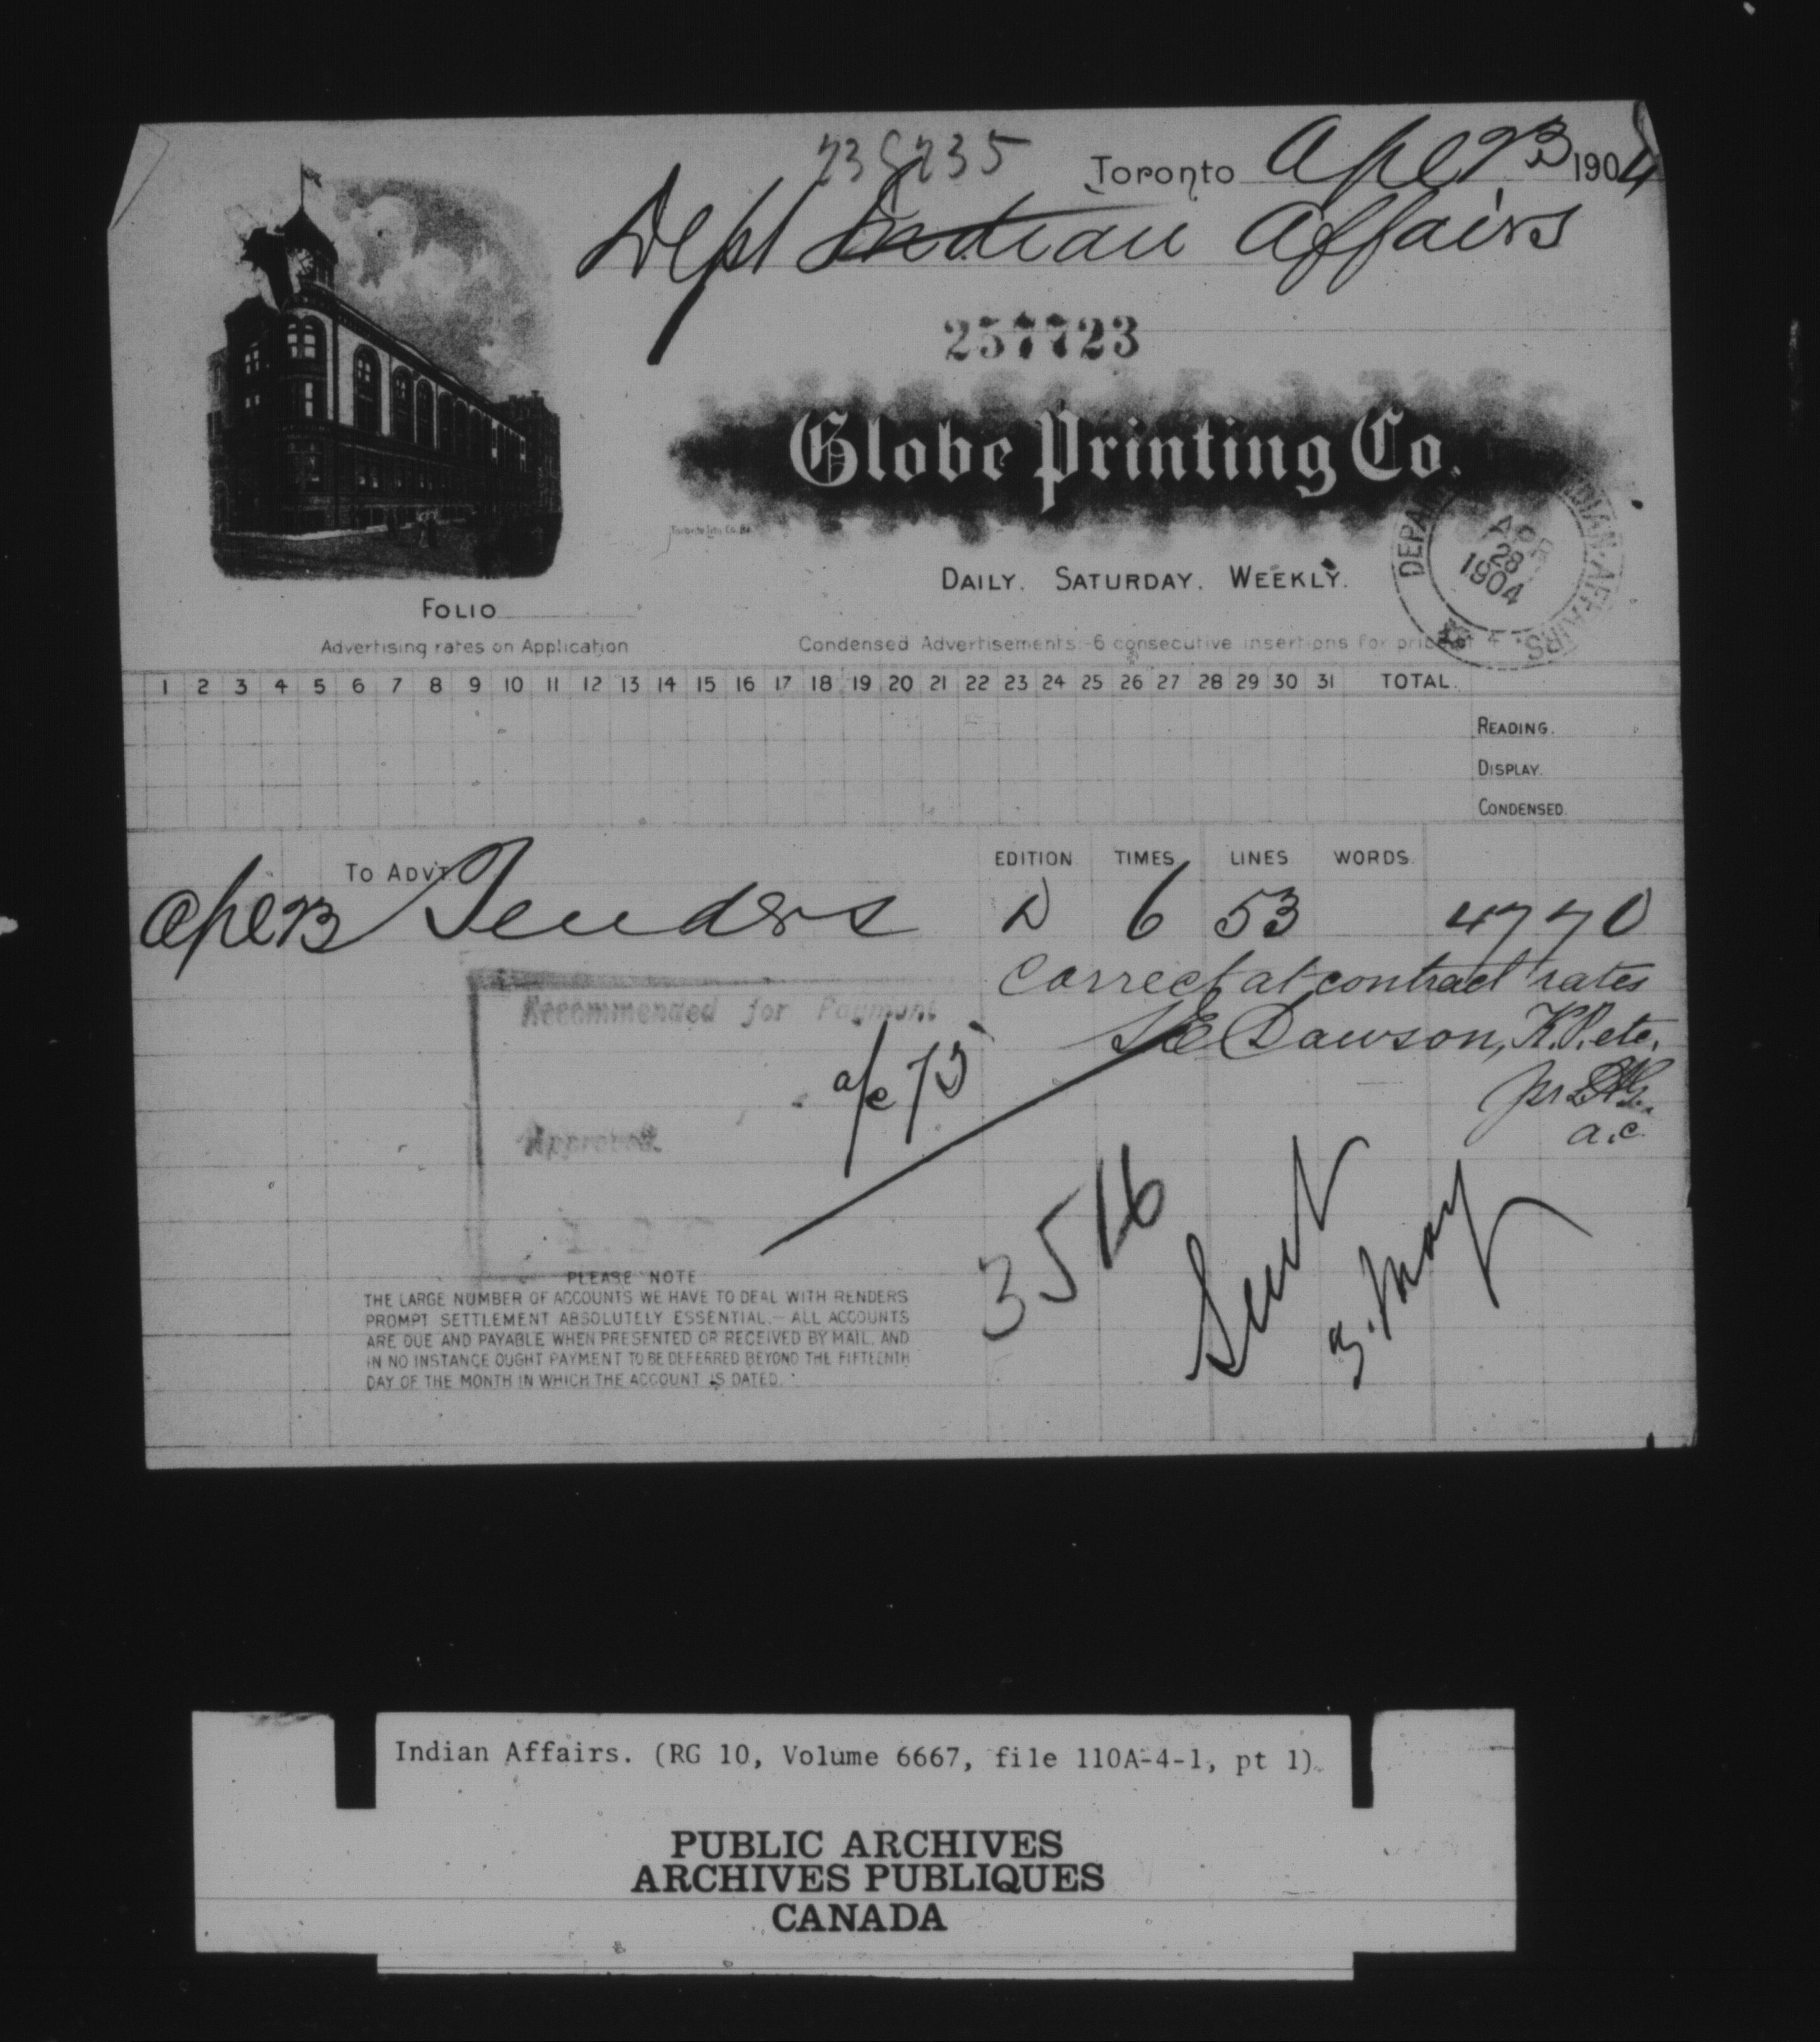 238235
Toronto Apl 23 1904
Dept Indian Affairs
257723
Globe Printing Co.
Toronto Litho Co.
DAILY. SATURDAY. WEEKLY.
APR 28 1904
FOLIO
Advertising rates on Application
Condensed Advertisements - 6 consecutive insertions for price of 4
1 2 3 4 5 6 7 8 9 10 11 12 13 14 15 16 17 18 19 20 21 22 23 24 25 26 27 28 29 30 31 TOTAL.
READING.
DISPLAY.
CONDENSED.
TO ADVT. EDITION TIMES LINES WORDS.
Apl 23 Tenders D 6 53 47 70
Correct at contract rates
Recommended for Payment
S E Dawson, K.P. etc.
a/c 75
pr
a.c.
Approved
3516
Sent
3. May
PLEASE NOTE
THE LARGE NUMBER OF ACCOUNTS WE HAVE TO DEAL WITH RENDERS
PROMPT SETTLEMENT ABSOLUTELY ESSENTIAL.— ALL ACCOUNTS
ARE DUE AND PAYABLE WHEN PRESENTED OR RECEIVED BY MAIL, AND
IN NO INSTANCE OUGHT PAYMENT TO BE DEFERRED BEYOND THE FIFTEENTH
DAY OF THE MONTH IN WHICH THE ACCOUNT IS DATED.
Indian Affairs. (RG 10, Volume 6667, file 110A-4-1, pt 1)
PUBLIC ARCHIVES
ARCHIVES PUBLIQUES
CANADA